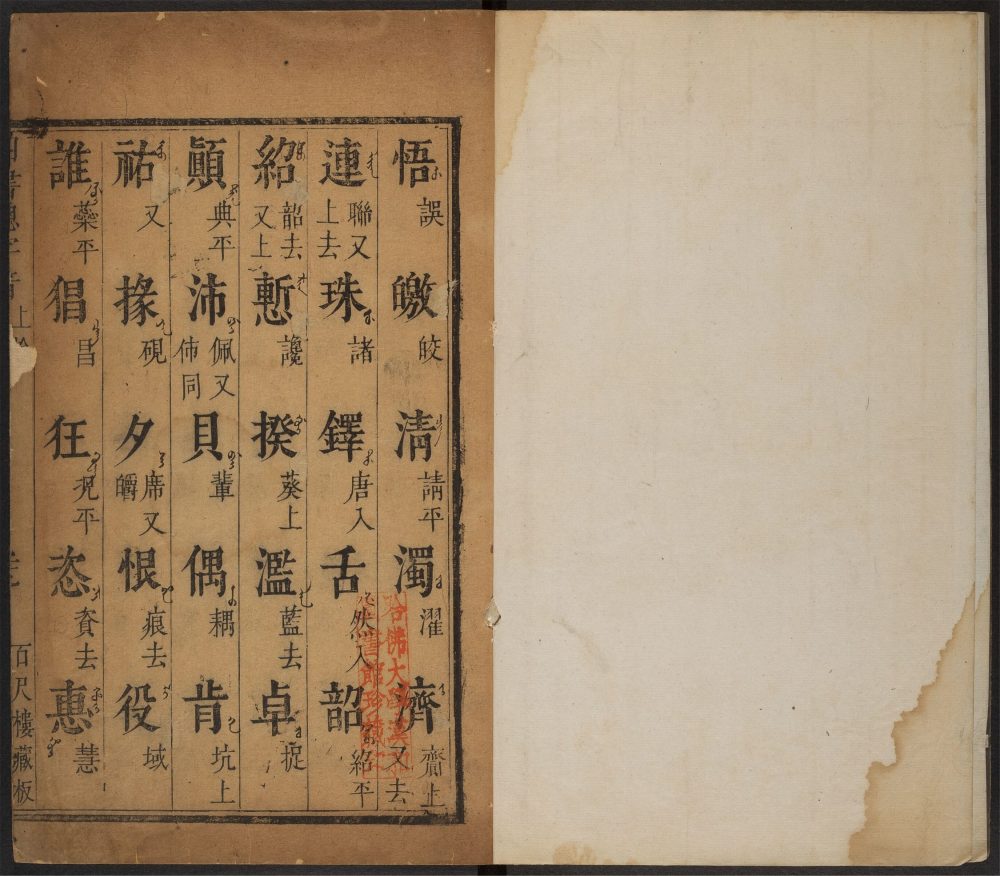 悟 誤 皦 皎 清 請平 濁 濯 濟 齋上又去
連 聯又上去 珠 諸 鐸 唐入 舌 然入 韶 紹平
紹 韶去又上 慙 讒 揆 葵上 濫 藍去 卓 捉
顚 典平 沛 佩又伂同 貝 輩 偶 耦 肯 坑上
祐 又 掾 硯 夕 席又皭 恨 痕去 役 域
誰 蘂平 猖 昌 狂 况平 恣 資去 惠 慧
上
百尺樓藏板
哈佛大學漢和
圖書館珍藏印